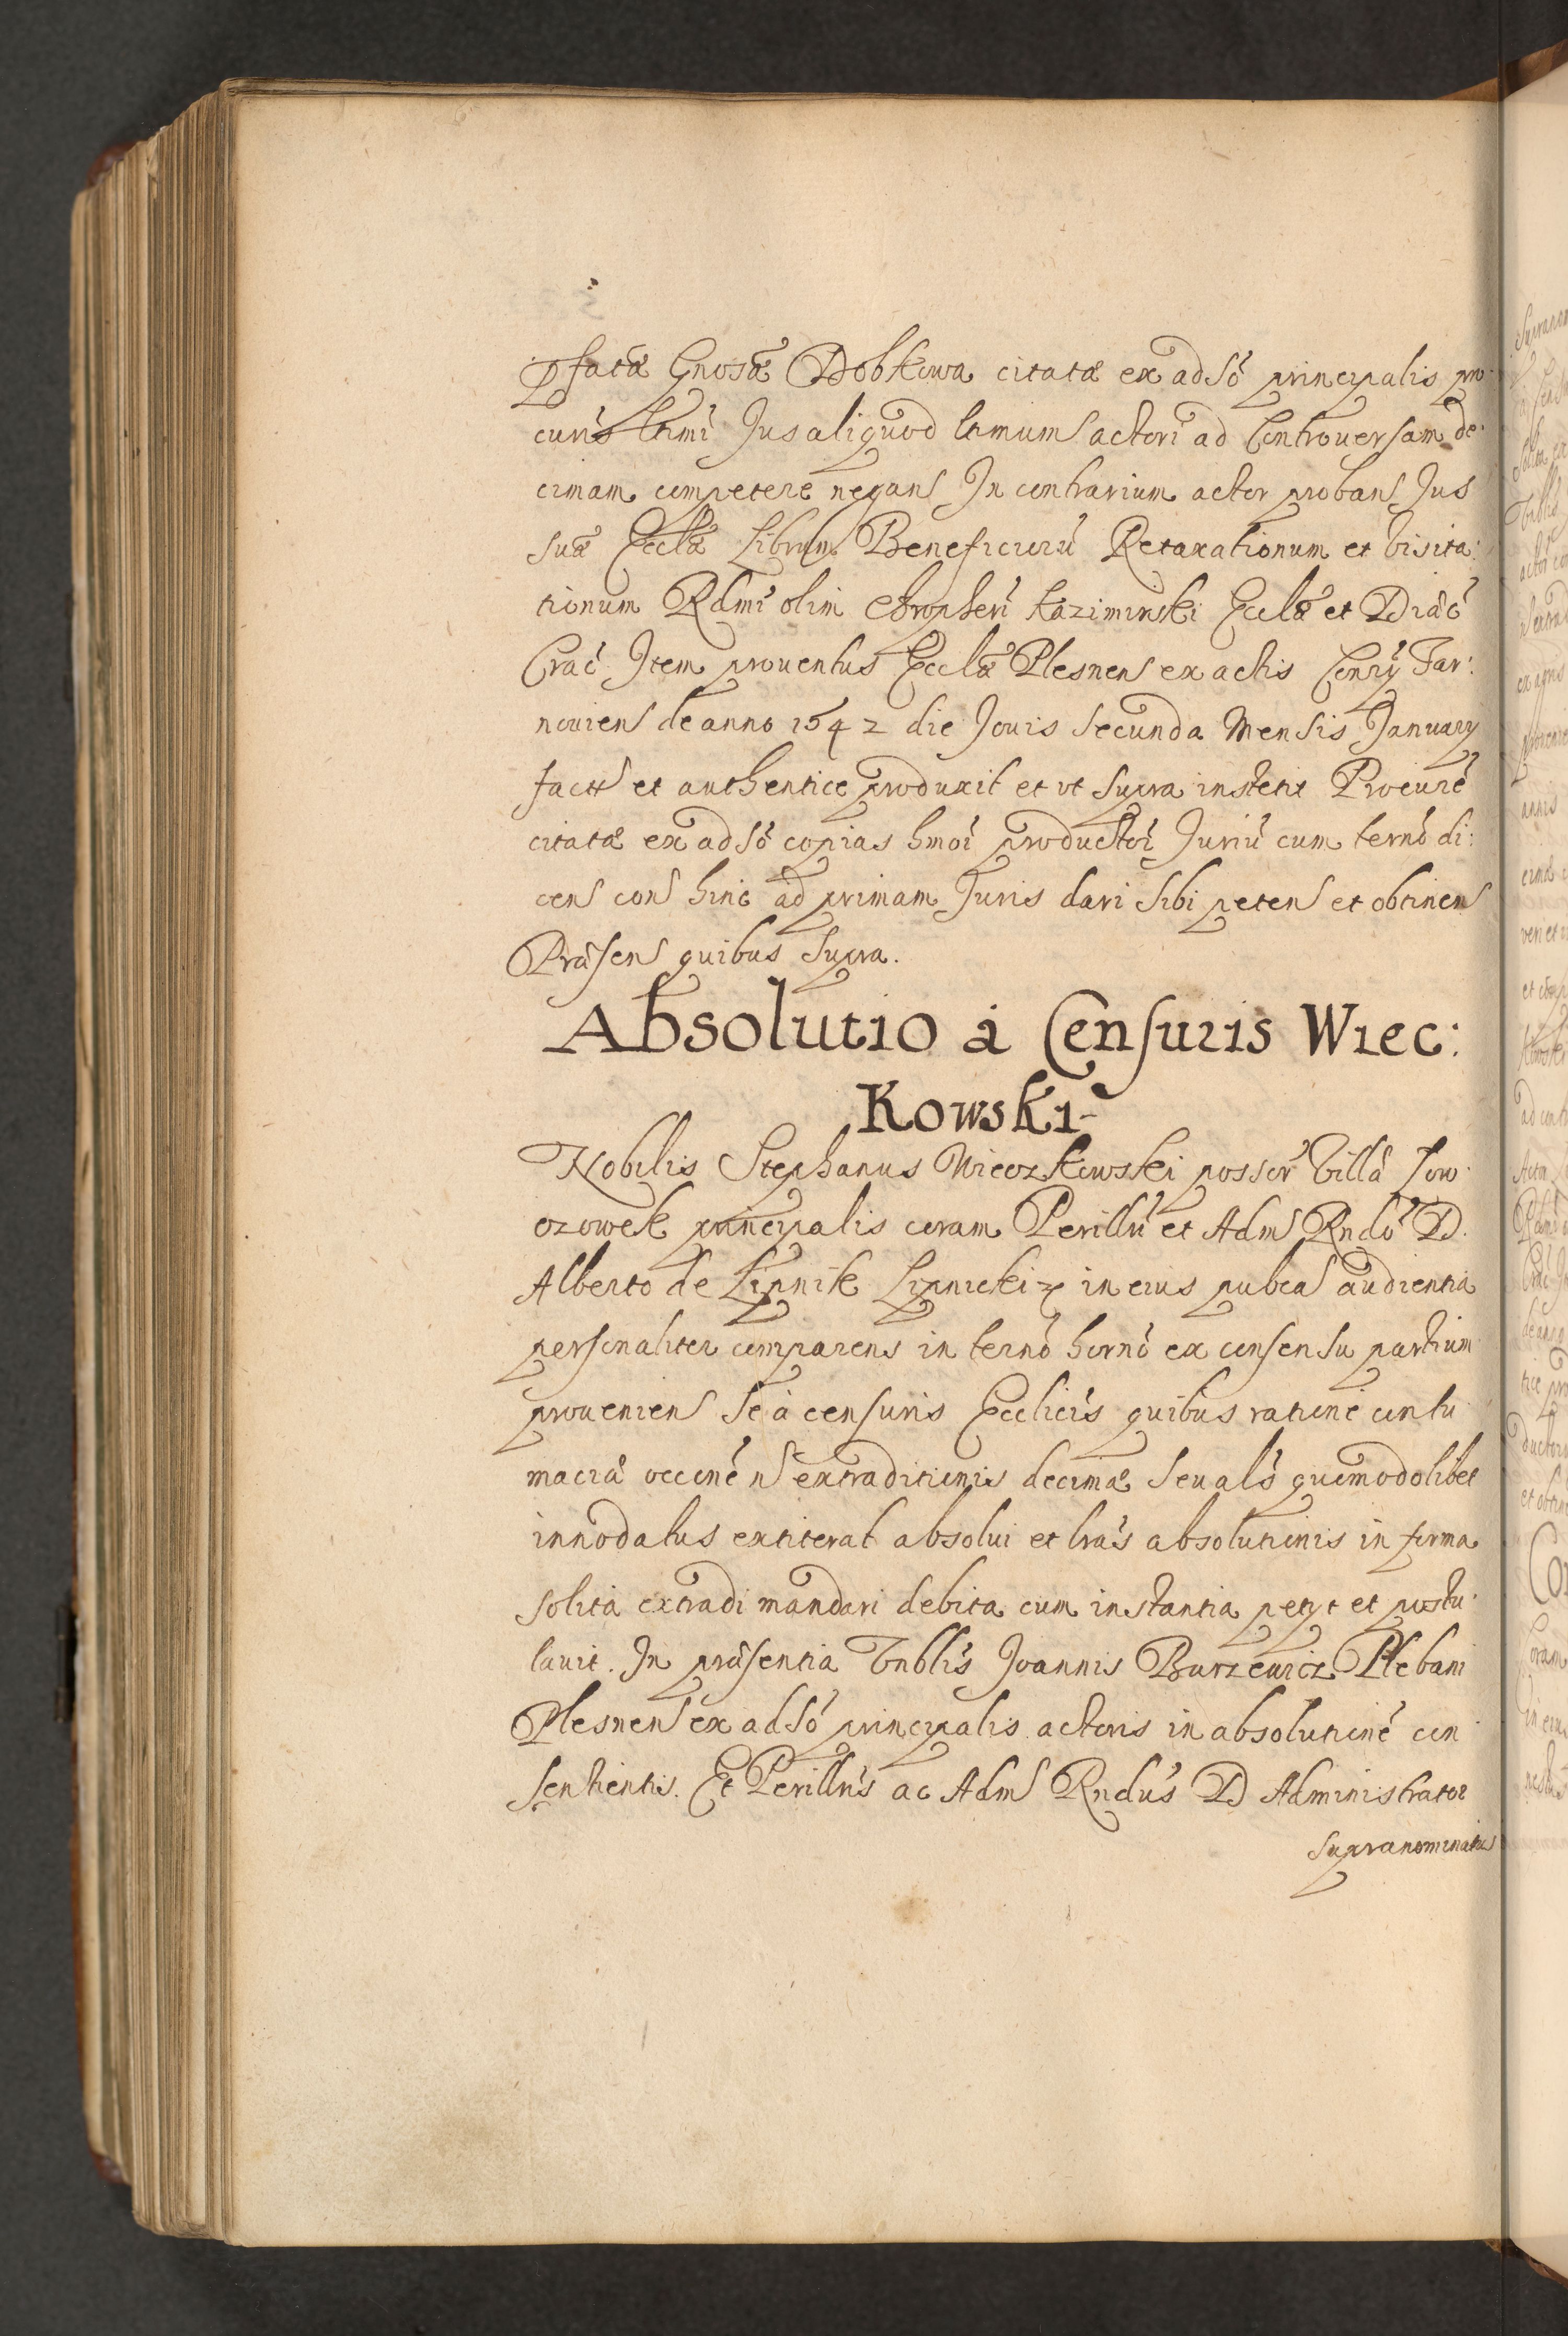 Pfatæ Gnosæ Dobkowa citatæ ex adso principalis pro:
curis ltimi Jus aliquod ltimum actori ad Controversam de:
cimam competere negans In contrarium actor probans Jus
suæ Ecclæ Librum Beneficiorũ Retaxationum et Visita:
tionum Rdmi olim Chropheri Kazimirski Ecclæ et Diæc
Crac Item proventus Ecclæ Plesnen ex actis Consÿ Tar:
novien de anno 1542 die Jovis secunda Mensis January
fact et authentice produxit et vt supra institit Procure
citatæ ex adso copias hmoi productor Juriũ cum termo di:
cen con hinc ad primam Juris dari sibi peten et obtinen
Præsen quibus supra.
Absolutio à Censuris Wiec:
Kowski
Nobilis Stephanus Wieczkowski possor Villæ Jow
czowek principalis coram Perillu et Adm Rndo D.
Alberto de Lipnik Lipnicki in eius publca audientia
personaliter comparens in termo horno ex consensu partium
provenien se à censuris Ecclicis quibus ratione contu
maciæ occone n extraditionis decimæ seu als quomodolibet
innodatus extiterat absolui et lras absolutionis in forma
solita extradi mandari debita cum instantia petyt et postu:
lauit. In præsentia Vnblis Joannis Burzewicz Plebani
Plesnen ex adso principalis actoris in absolutione con
sentientis. Et Perillris ac Adm Rndus D Administrator
supranominatus